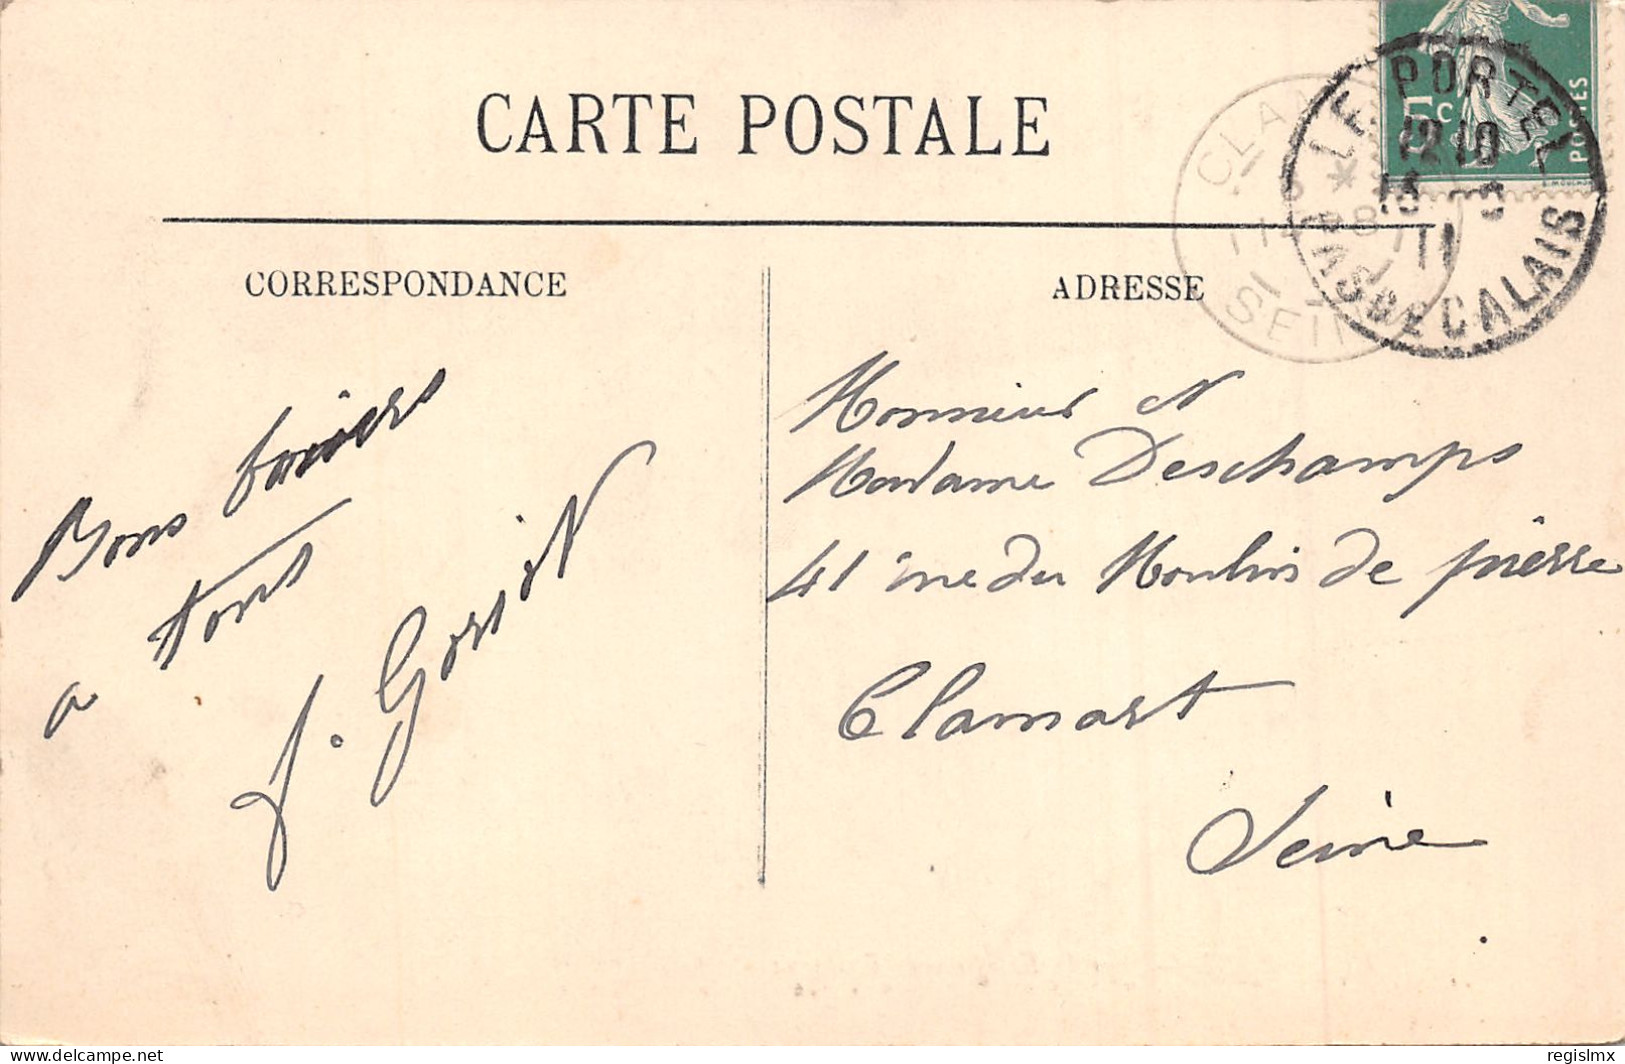 CARTE POSTALE
CORRESPONDANCE
ADRESSE
5 c
POSTES
LE PORTEL
12 10
11
PAS DE CALAIS
SEINE
Bons baisers
a tous
J. Gossiot
Monsieur et
Madame Deschamps
41 rue du Moulin de pierre
Clamart
Seine
delcampe.net
regislmx